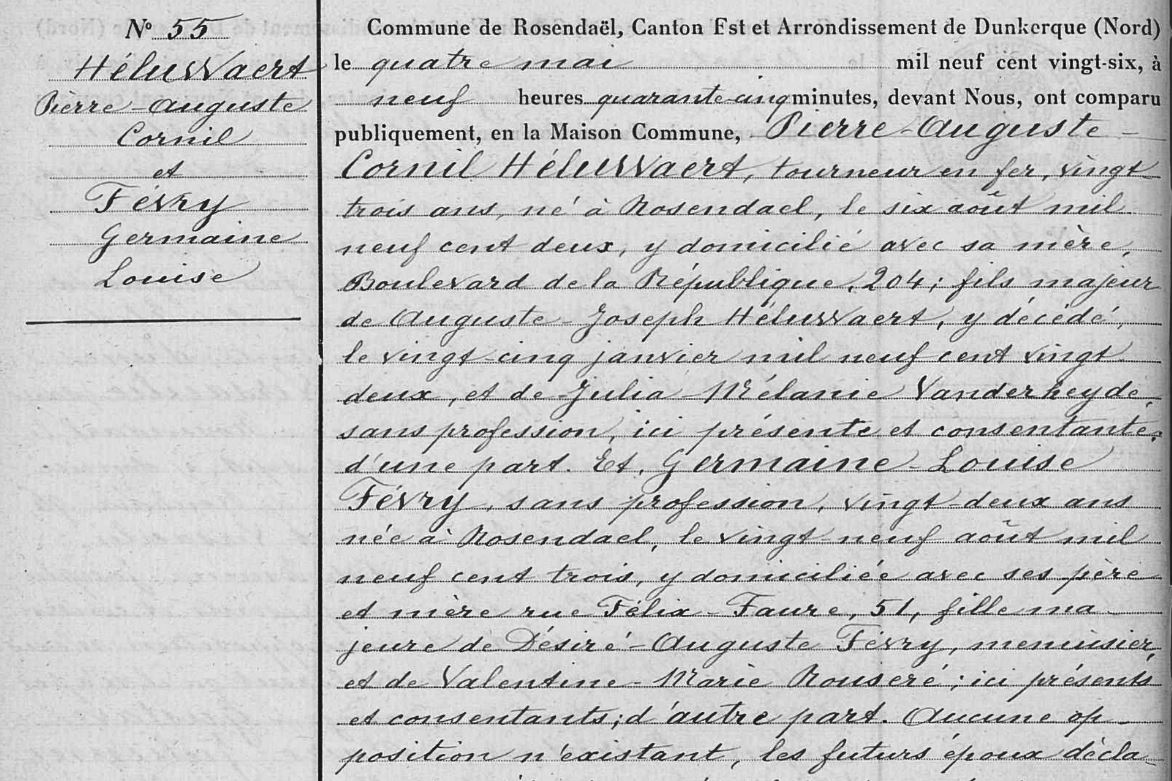 N° 55
HéluWaert
Pierre-Auguste
Cornil
et
Févry
Germaine
Louise
Commune de Rosendaël, Canton Est et Arrondissement de Dunkerque (Nord)
le quatre mai mil neuf cent vingt-six, à
neuf heures quarante-cinq minutes, devant Nous, ont comparu
publiquement, en la Maison Commune, Pierre-Auguste-
Cornil HéluWaert, tourneur en fer, vingt
trois ans, né à Rosendael, le six août mil
neuf cent deux, y domicilié avec sa mère,
Boulevard de la République, 204; fils majeur
de Auguste-Joseph HéluWaert, y décédé,
le vingt-cinq janvier mil neuf cent vingt
deux, et de Julia Mélanie Vanderheyde,
sans profession, ici présente et consentante;
d'une part. Et, Germaine-Louise
Févry, sans profession, vingt deux ans
née à Rosendael, le vingt neuf août mil
neuf cent trois, y domiciliée avec ses père
et mère rue Félix-Faure, 51, fille ma-
jeure de Désiré-Auguste Févry, menuisier,
et de Valentine-Marie Rouseré; ici présents
et consentants; d'autre part. Aucune op-
position n'existant, les futurs époux décla-